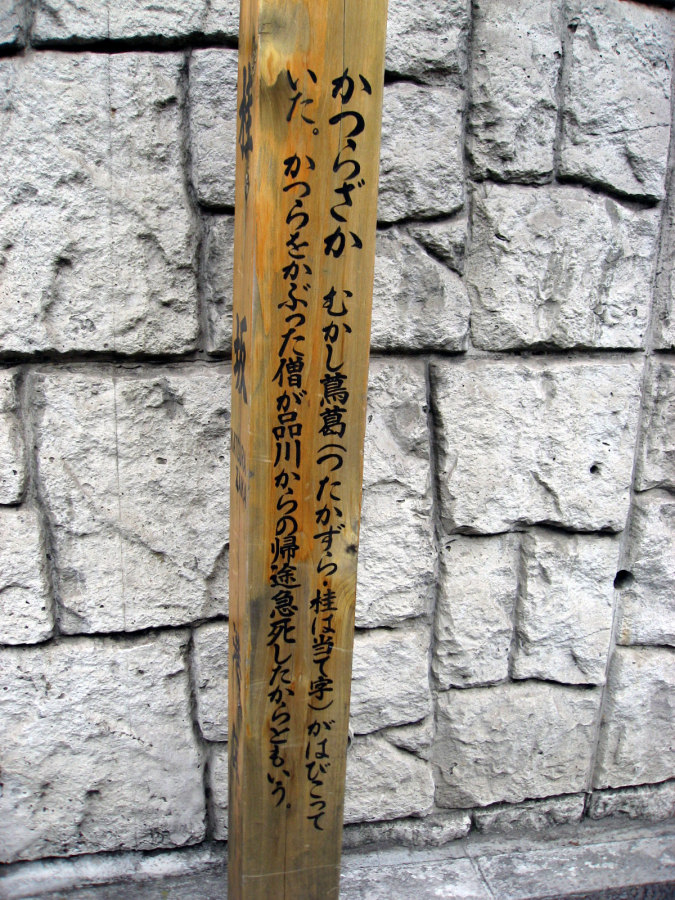 かつらざか むかし蔦葛(つたかずら・桂は当て字)がはびこって
いた。かつらをかぶった僧が品川からの帰途急死したからともいう。
桂
坂